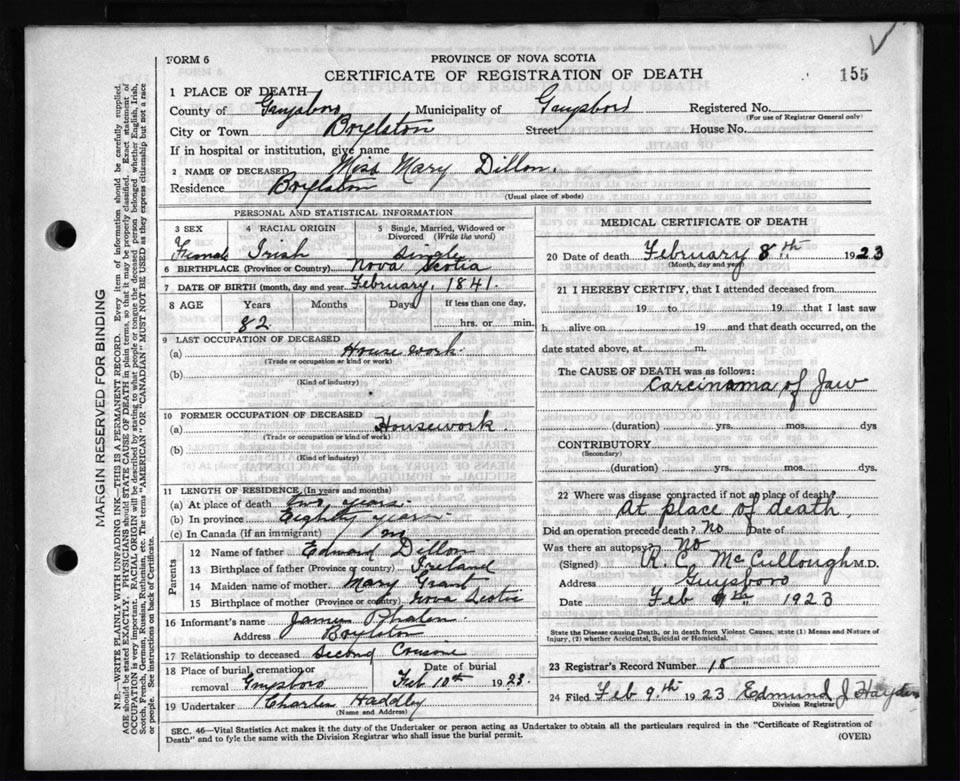 FORM 6
PROVINCE OF NOVA SCOTIA
CERTIFICATE OF REGISTRATION OF DEATH
155
1 PLACE OF DEATH
County of Guysboro Municipality of Guysboro Registered No.
(For use of Registrar General only)
City or Town Boylston Street House No.
If in hospital or institution, give name
2 NAME OF DECEASED Miss Mary Dillon.
Residence Boylston
(Usual place of abode)
PERSONAL AND STATISTICAL INFORMATION
3 SEX 4 RACIAL ORIGIN 5 Single, Married, Widowed or Divorced (Write the word)
Female Irish Single
6 BIRTHPLACE (Province or Country) Nova Scotia
7 DATE OF BIRTH (month, day and year) February, 1841.
8 AGE Years Months Days If less than one day,
82 hrs. or min.
9 LAST OCCUPATION OF DECEASED
(a) House work.
(Trade or occupation or kind of work)
(b)
(Kind of industry)
10 FORMER OCCUPATION OF DECEASED
(a) Housework.
(Trade or occupation or kind of work)
(b)
(Kind of industry)
11 LENGTH OF RESIDENCE (In years and months)
(a) At place of death two years
(b) In province Eighty years
(c) In Canada (if an immigrant)
Parents
12 Name of father Edward Dillon
13 Birthplace of father (Province or country) Ireland
14 Maiden name of mother Mary Grant
15 Birthplace of mother (Province or country) Nova Scotia
16 Informant's name James O'Phalen
Address Boylston
17 Relationship to deceased Second Cousin
18 Place of burial, cremation or removal Guysboro
Date of burial Feb 10th 1923.
19 Undertaker Charles Hadley
(Name and Address)
MEDICAL CERTIFICATE OF DEATH
20 Date of death February 8th 1923
(Month, day and year)
21 I HEREBY CERTIFY, that I attended deceased from
19 to 19 that I last saw
h alive on 19 and that death occurred, on the
date stated above, at m.
The CAUSE OF DEATH was as follows:
Carcinoma of Jaw
(duration) yrs. mos. dys
CONTRIBUTORY
(Secondary)
(duration) yrs. mos. dys.
22 Where was disease contracted if not at place of death?
At place of death.
Did an operation precede death? No Date of
Was there an autopsy? No
(Signed) R. C. McCullough M.D.
Address Guysboro
Date Feb 9th 1923
State the Disease causing Death, or in death from Violent Causes, state (1) Means and Nature of
Injury, (2) whether Accidental, Suicidal or Homicidal.
23 Registrar's Record Number 18
24 Filed Feb 9th 1923 Edmund J Hayden
Division Registrar
SEC. 46—Vital Statistics Act makes it the duty of the Undertaker or person acting as Undertaker to obtain all the particulars required in the "Certificate of Registration of
Death" and to fyle the same with the Division Registrar who shall issue the burial permit.
(OVER)
MARGIN RESERVED FOR BINDING
N.B.—WRITE PLAINLY, WITH UNFADING INK—THIS IS A PERMANENT RECORD. Every item of information should be carefully supplied.
AGE should be stated EXACTLY. PHYSICIANS should STATE CAUSE OF DEATH in plain terms, so that it may be properly classified. Exact statement of
OCCUPATION is very important. RACIAL ORIGIN will be described by stating to what people or tongue the deceased person belonged whether English, Irish,
Scotch, French, German, Russian, Ruthenian, etc. The terms "AMERICAN" OR "CANADIAN" MUST NOT BE USED as they express citizenship but not a race
or people. See instructions on back of Certificate.